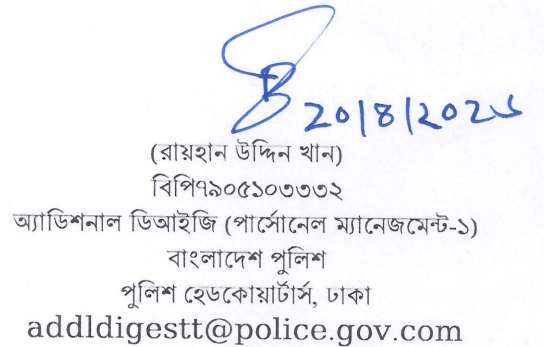 20/8/2025
(রায়হান উদ্দিন খান)
বিপি৭৯০৫১০৩৩৩২
অ্যাডিশনাল ডিআইজি (পার্সোনেল ম্যানেজমেন্ট-১)
বাংলাদেশ পুলিশ
পুলিশ হেডকোয়ার্টার্স, ঢাকা
addldigestt@police.gov.com